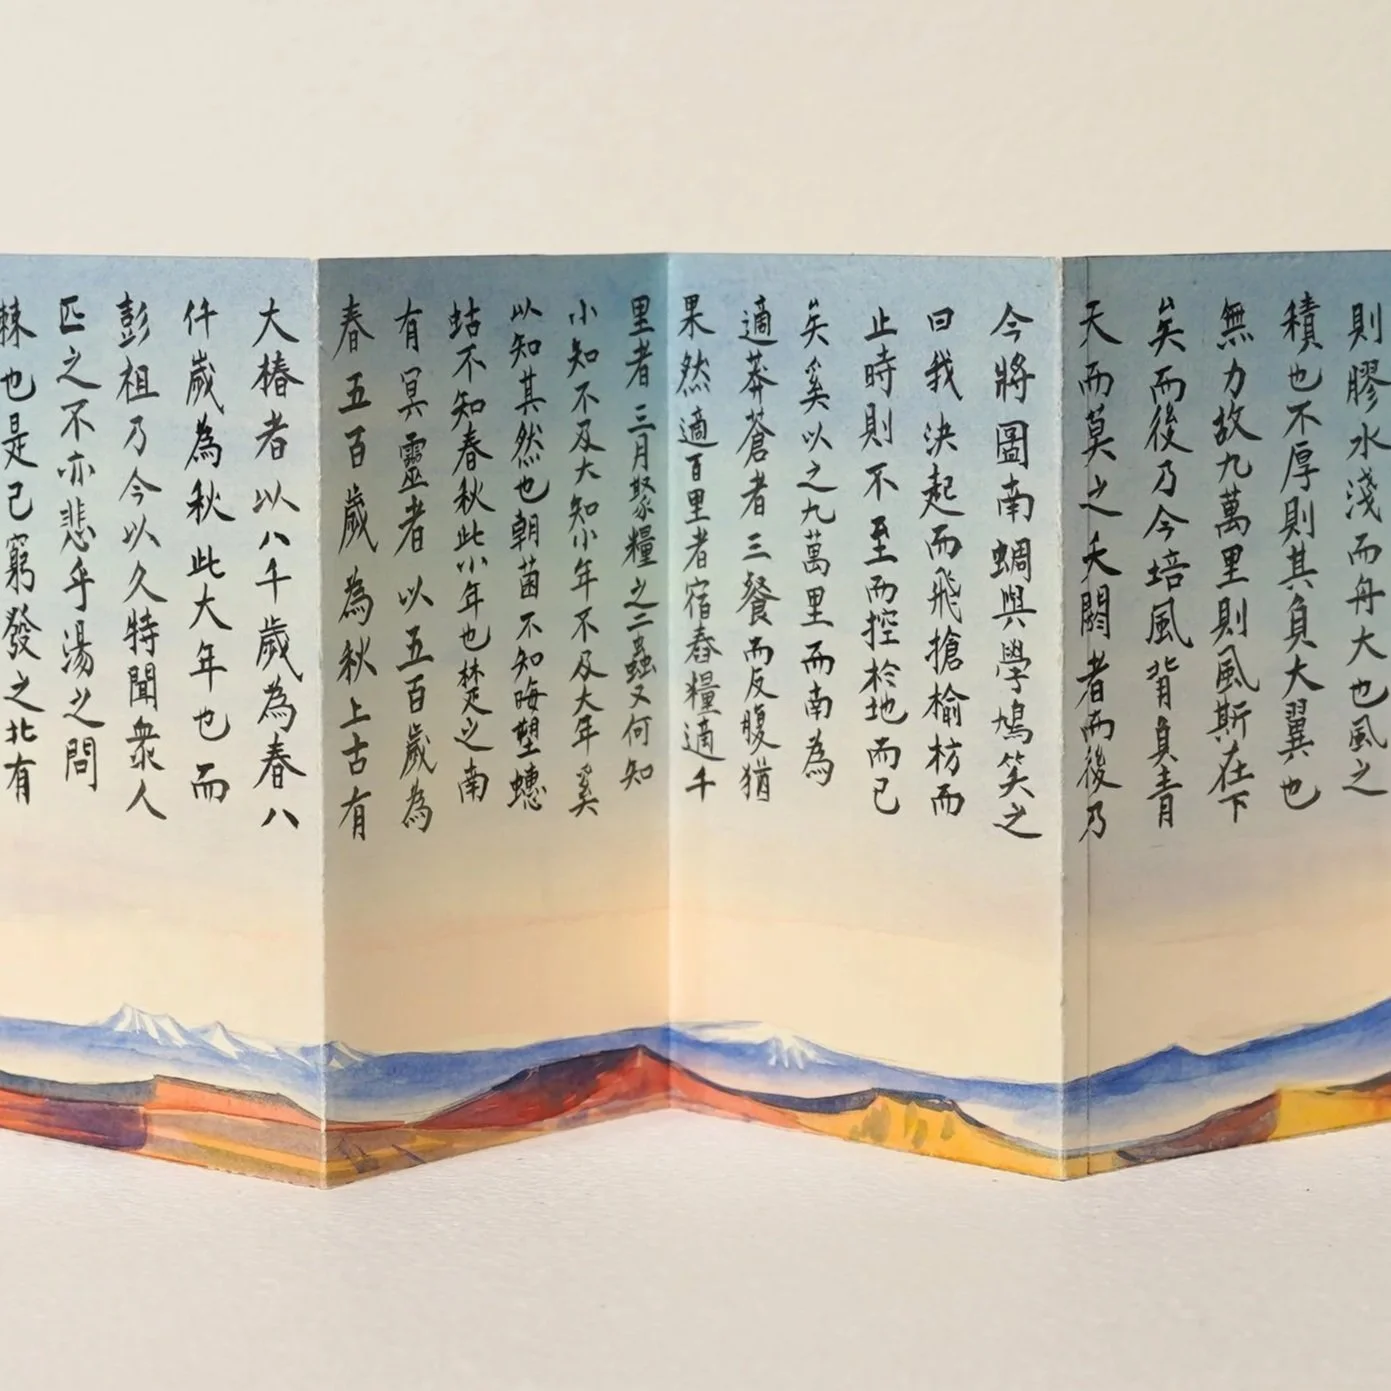 則膠水淺而舟大也風之
積也不厚則其負大翼也
無力故九萬里則風斯在下
矣而後乃今培風背負青
天而莫之夭閼者而後乃
今將圖南蜩與學鳩笑之
曰我決起而飛搶榆枋而
止時則不至而控於地而已
矣奚以之九萬里而南為
適莽蒼者三餐而反腹猶
果然適百里者宿舂糧適千
里者三月聚糧之二蟲又何知
小知不及大知小年不及大年奚
以知其然也朝菌不知晦塱蟪
蛄不知春秋此小年也楚之南
有冥靈者以五百歲為
春五百歲為秋上古有
大椿者以八千歲為春八
仟歲為秋此大年也而
彭祖乃今以久特聞衆人
匹之不亦悲乎湯之問
棘也是已窮發之北有